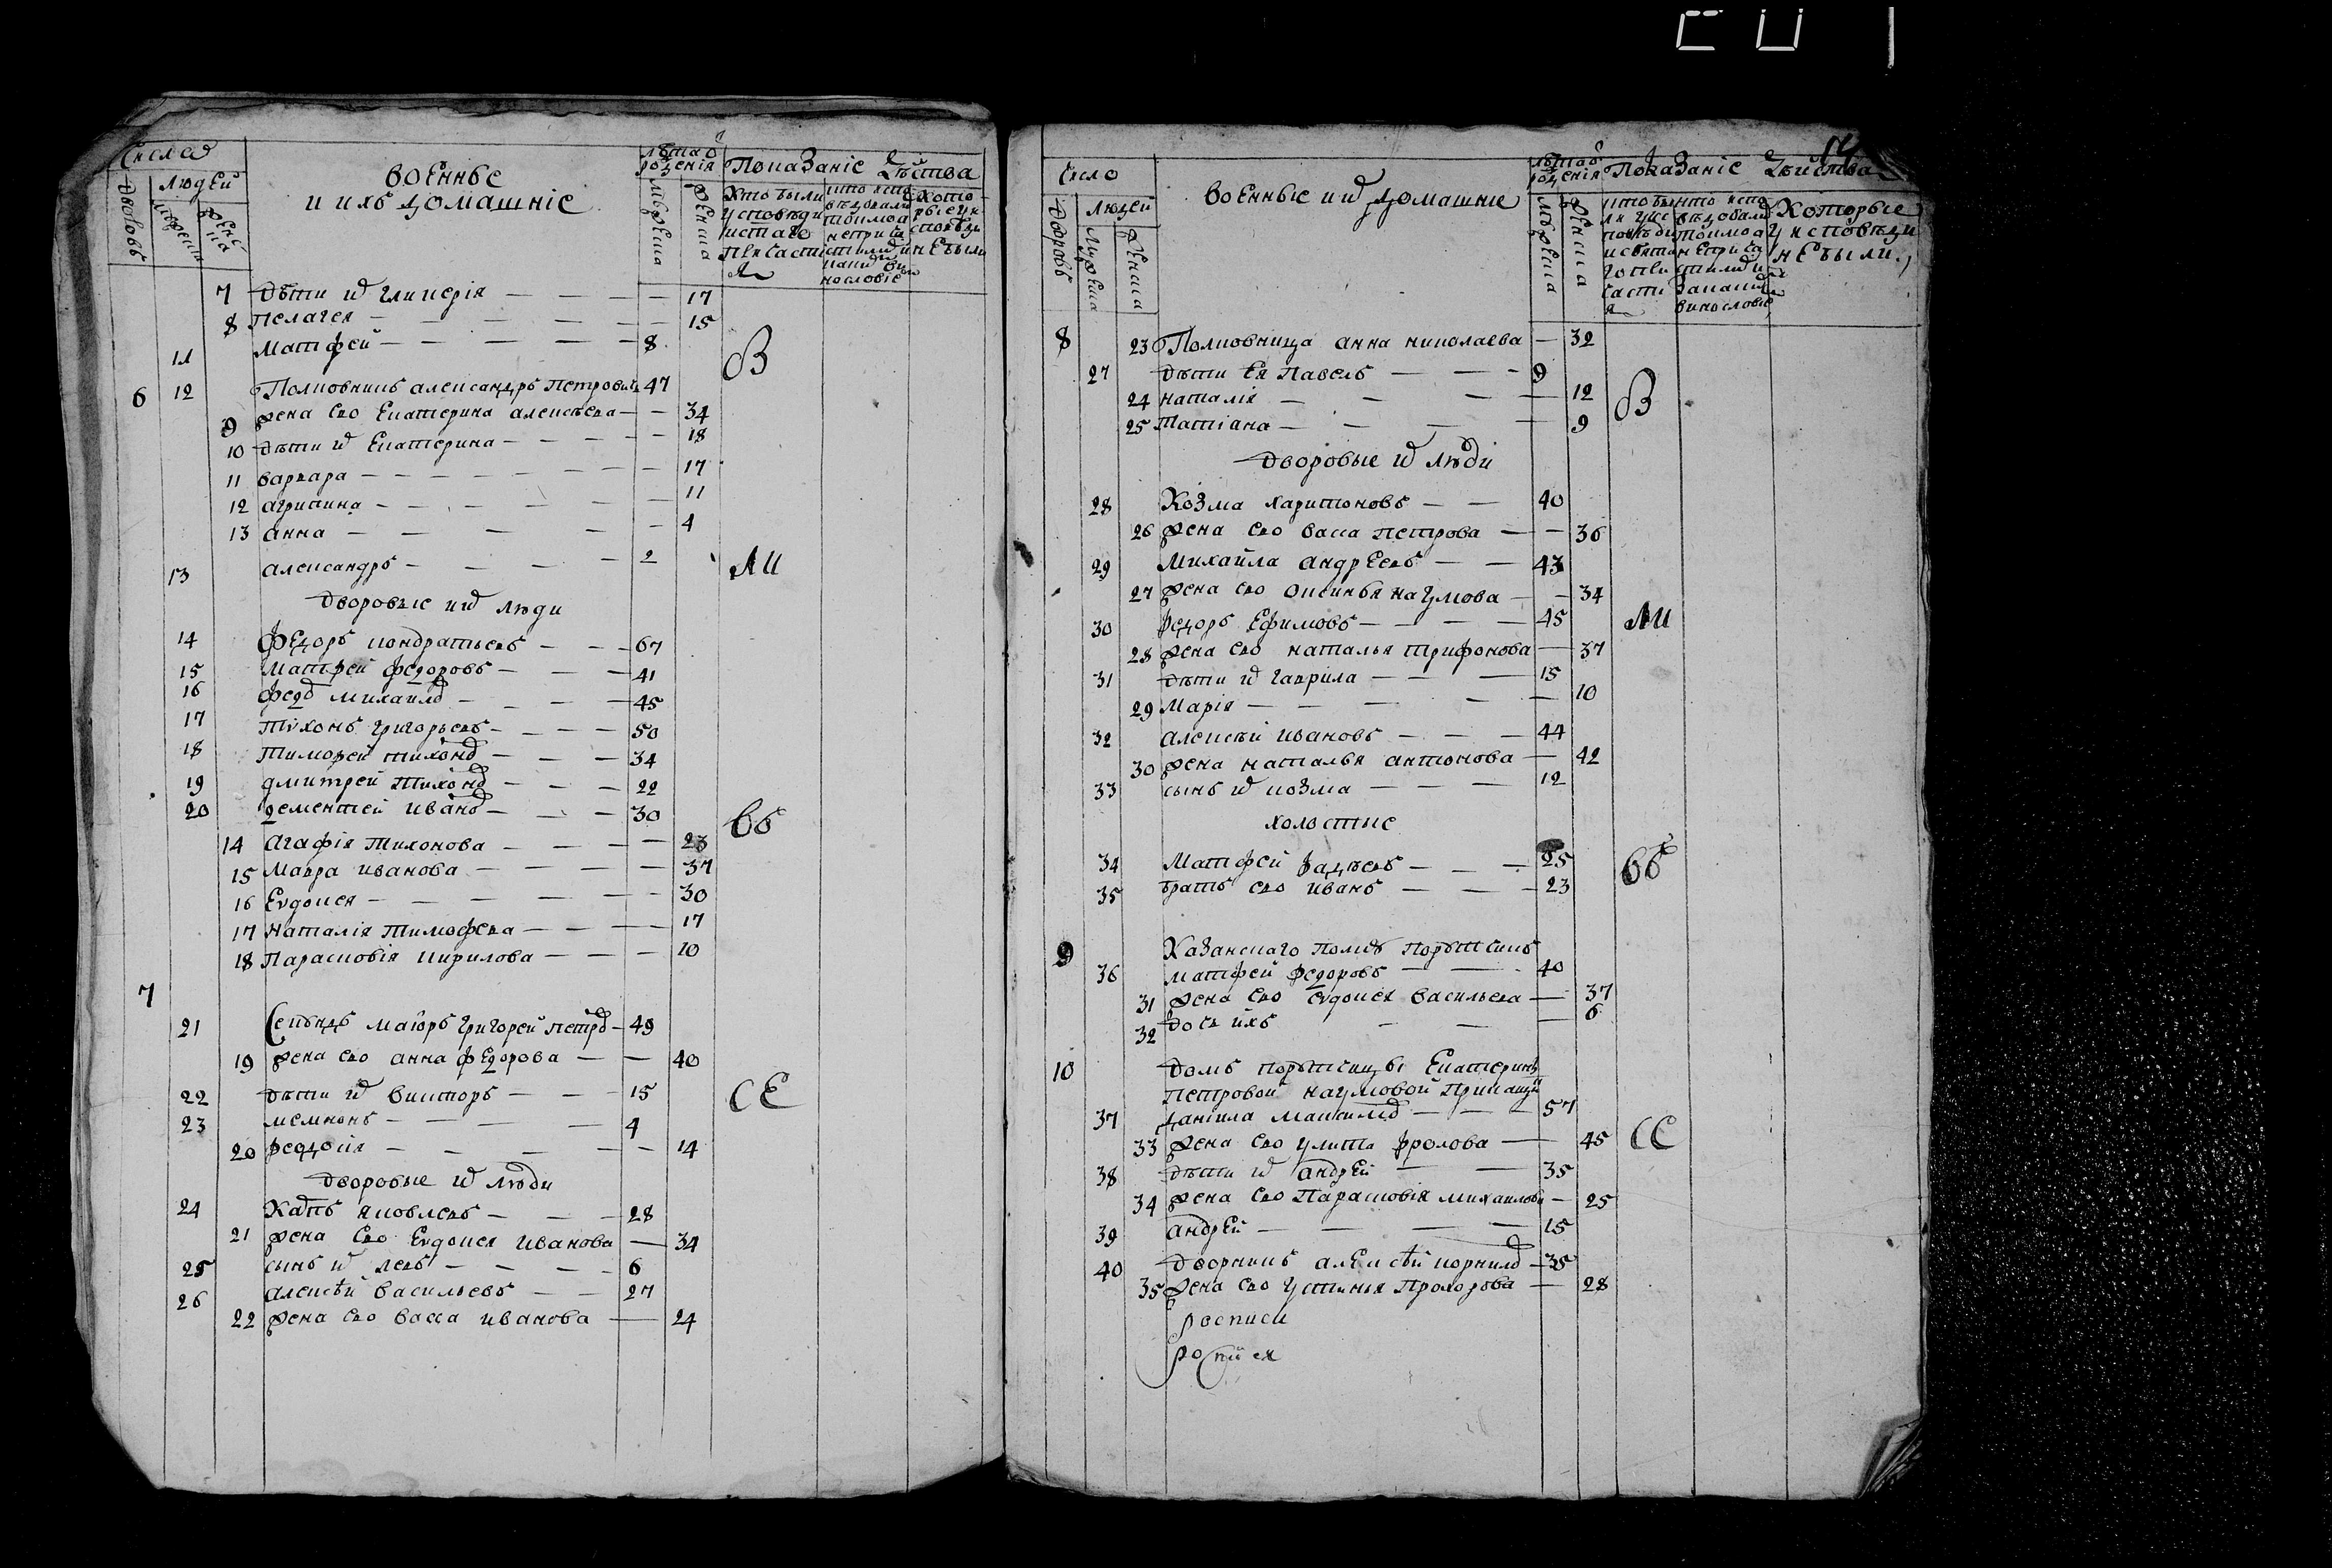 14
Число
Дворовъ
людей
мужеска
женска
военные
и ихъ домашніе
лѣта от рожденія
мужеска
женска
Показаніе дѣйства
Хто были у исповѣди и святаго причастія
7 Дѣти их Гликерія — 17
8 Пелагея — 15
11 Матфей — 8
В
6 12 Полковникъ александръ Петровичъ 47
9 жена ево Екатерина алексѣева — 34
10 дѣти их Екатерина — 18
11 варвара — 17
12 агрипина — 11
13 анна — 4
13 александръ — 2
ли
дворовые их люди
14 Федоръ кондратьевъ — 67
15 Матфей федоровъ — 41
16 фед михаил — 45
17 Тихонъ григорьевъ — 50
18 Тимофей тихон — 34
19 дмитрей Тихон — 22
20 дементей иван — 30
вс
14 Агафія Тихонова — 23
15 Мавра иванова — 37
16 Евдокея — 30
17 наталія Тимофева — 17
18 Парасковія кирилова — 10
7
21 Секундъ маіоръ григорей петро — 49
19 жена ево анна федорова — 40
22 дѣти их викторъ — 15
се
23 мемнонъ — 4
20 федосія — 14
дворовые их люди
24 яковлевъ — 28
21 жена Ево Евдокея иванова — 34
25 сынъ их левъ — 6
26 алексѣй васильевъ — 27
22 жена ево васса иванова — 24
Число
Дворовъ
людей
мужеска
женска
военные и их домашние
лѣта от рожденія
мужеска
женска
Показаніе дѣйства
Которые у исповѣди не были
8 23 Полковница анна николаева — 32
27 дѣти Ея Павелъ — 9
24 наталія — 12
В
25 Татіана — 9
дворовые их люди
28 Козма харитоновъ — 40
26 жена ево васса петрова — 36
29 Михайла андреевъ — 43
27 жена ево оксинья наумова — 34
30 федоръ Ефимовъ — 45
ли
28 жена ево наталья трифонова — 37
31 дѣти их гаврила — 15
29 Марія — 10
32 алексѣй ивановъ — 44
30 жена наталья антонова — 42
33 сынъ их козма — 12
холостые
34 Матфей фадѣевъ — 25
вс
35 братъ ево иванъ — 23
9 Казанскаго полку порутчикъ
36 матфей федоровъ — 40
31 жена ево евдокея васильева — 37
32 дочь ихъ — 6
10 домъ порутчицы Екатерины
петровой наумовой Прикащи
37 данила максим — 57
33 жена ево улита фролова — 45
се
38 дѣти их андрей — 35
34 жена ево Парасковія михаилова — 25
39 андрей — 15
40 дворникъ алексѣй корнил — 35
35 жена ево устинья Прохорова — 28
росписи